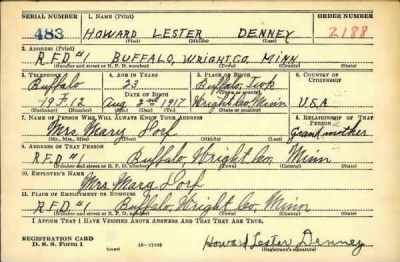 SERIAL NUMBER 1. NAME (Print) ORDER NUMBER
483 HOWARD LESTER DENNEY 2188
(First) (Middle) (Last)
2. ADDRESS (Print)
R.F.D #1 BUFFALO, WRIGHT, CO. MINN
(Number and street or R. F. D. number) (Town) (County) (State)
3. TELEPHONE 4. AGE IN YEARS 5. PLACE OF BIRTH 6. COUNTRY OF CITIZENSHIP
Buffalo 23 Buffalo,
DATE OF BIRTH (Town or county)
19F12 Aug 2nd 1917 Wright Co, Minn U.S.A
(Exchange) (Number) (Mo.) (Day) (Yr.) (State or country)
7. NAME OF PERSON WHO WILL ALWAYS KNOW YOUR ADDRESS 8. RELATIONSHIP OF THAT PERSON
Mrs Mary Grandmother
(Mr., Mrs., Miss) (First) (Middle) (Last)
9. ADDRESS OF THAT PERSON
R.F.D. #1 Buffalo, Wright Co, Minn
(Number and street or R. F. D. number) (Town) (County) (State)
10. EMPLOYER'S NAME
Mrs Mary
11. PLACE OF EMPLOYMENT OR BUSINESS
R.F.D. #1 Buffalo, Wright Co, Minn
(Number and street or R. F. D. number) (Town) (County) (State)
I AFFIRM THAT I HAVE VERIFIED ABOVE ANSWERS AND THAT THEY ARE TRUE.
REGISTRATION CARD
D. S. S. Form 1 (over) 16-17105 Howard Lester Denney
(Registrant's signature)